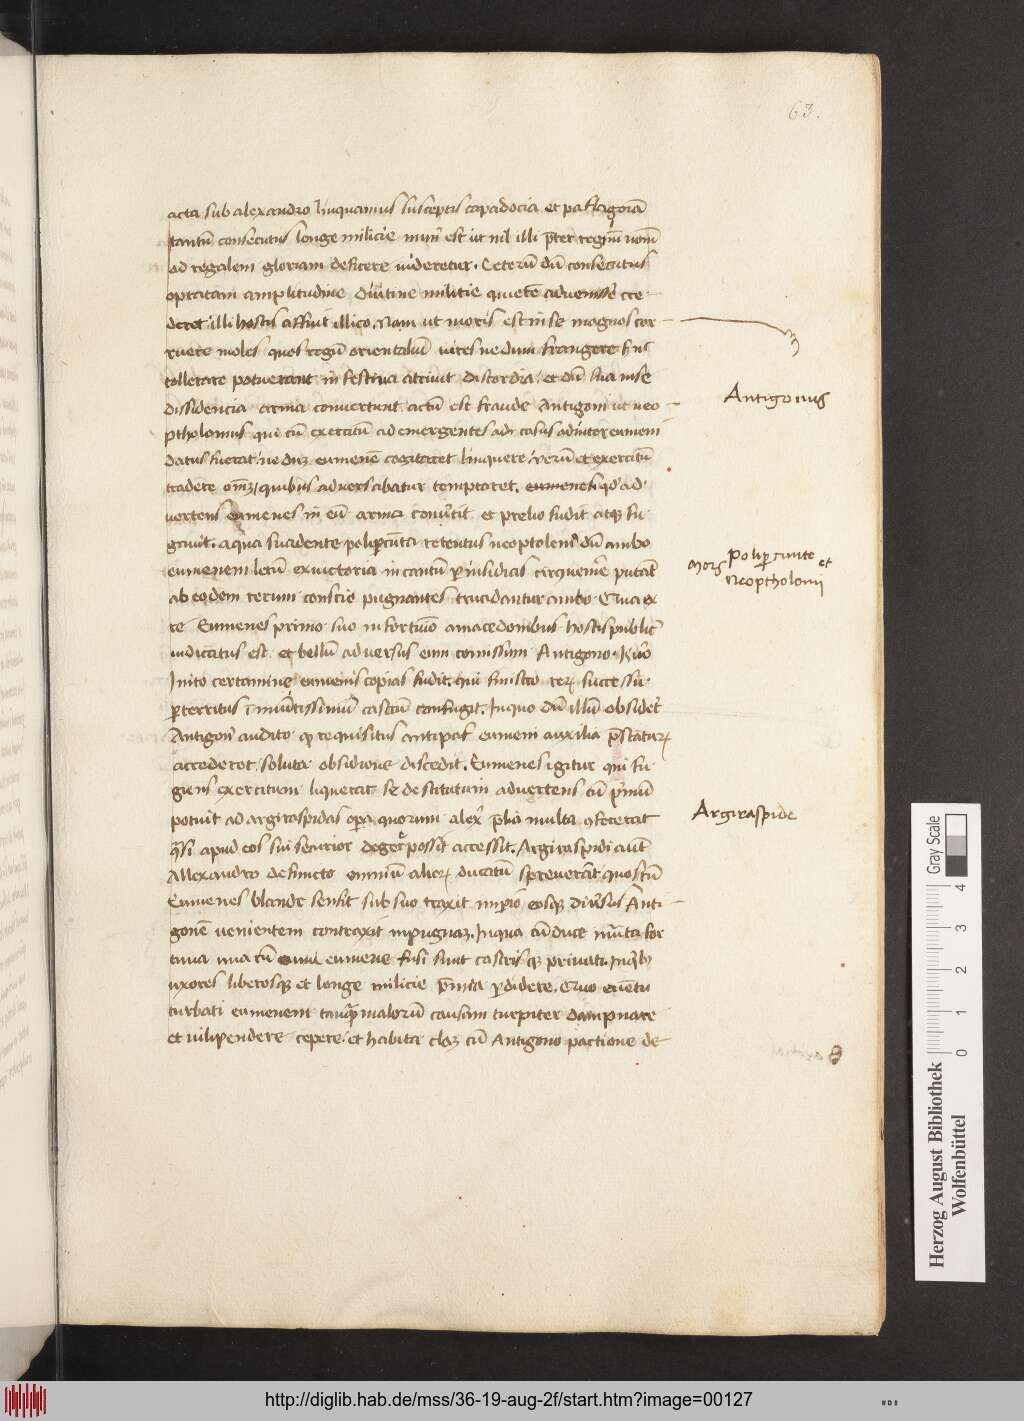 63.
acta sub alexandro linquamus susceptis capadocia et paflagoīa
tantū consecutus longe milicie mun9 est ut nil illi p̄ter regiū nom̄
ad regalem gloriam deficere uideretur. Ceterū dū consecutus
optatam amplitudine diutine militie quietē aduenisse cre
deret illi hostis affuit illico. Nam ut moris est in se magnos cor
ruere moles quos regū orientaliū uires nedum frangere s;
tollerare potuerant in festiua attriuit discordia et dū sua in se
dissidencia arma conuertunt actū est fraude Antigoni ut neo
ptholomus qui cū exercitū ad emergentes casus adiutor eumeni
datus fuerat ne dū eumenē cogitaret linquere uerū et exercitū
tradere quibus aduersabatur temptaret. eumenes qd ad
uertens eumenes in eū arma conuertit et prelio fudit atq; fu
gauit. a qua suadente polipcūta retentus neoptolem9 dū ambo
eumenem letū ex uictoria incautū p insidias putāt
ab eodem rerum conscio pugnantes trucidantur ambo. Qua ex
re Eumenes primo suo infortuīo a macedonibus hostis public9
iudicatus est. et bellū aduersus eum comissum Antigono. Quo
Inito certamine eumenis copias fudit. qui sinistro rerꝝ successu
pterritus munitissimū castrū confugit. In quo dū illū obsider;
Antigon9 audito q requisitus antipat eumeni auxilia p̄staturꝝ
accederet soluta obsidione discedit. Eumenes igitur qui fu
giens exercitum liquerat se destitutum aduertens cū p̄mū
potuit ad argiraspidas opa quorum alex̄ p̄lia multa ɔfecerat
q̄si apud eos sui securior degere possit accessit. Argiraspidi aut̄
Allexandro defuncto omniū aliorꝝ ducatū spreuerāt quos tn̄
Eumenes blande sensit sub suo traxit imp̄io eosq; aduersus Anti
gonē uenientem contraxit in pugnaꝫ. In qua cū duce inuita for
tuna una cū eumene fusi sunt castrisq; priuati. In qb;
uxores liberosq; et longe milicie p̄mia pdidere. Quo euētu
turbati eumenem tanq̄ malorū causam turpiter dampnare
et uilipendere cepere. et habita claꝫ cū Antigono pactione de
Antigonus
Mors polipcunte et
Neoptholomi
Argiraspide
Herzog August Bibliothek
Wolfenbüttel
Gray Scale
0 1 2 3 4
http://diglib.hab.de/mss/36-19-aug-2f/start.htm?image=00127